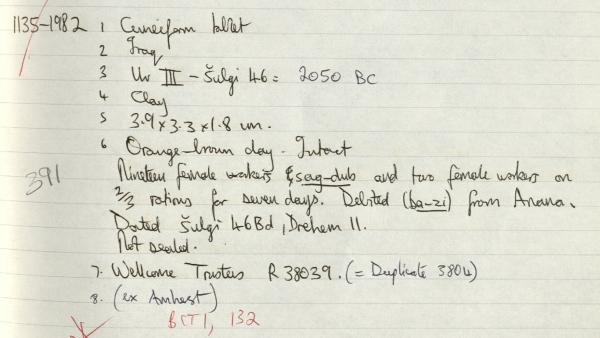 1135-1982 1 Cuneiform tablet
2 Iraq
3 Ur III - Šulgi 46 = 2050 BC
4 Clay
5 3.9 x 3.3 x 1.8 cm.
6 Orange-brown clay - Intact
391 Nineteen female workers & sag-dub and two female workers on
2/3 rations for seven days. Debited (ba-zi) from Anana.
Dated Šulgi 46Bd, Drehem 11.
Not sealed.
7. Wellcome Trustees R 38039. (= Duplicate 3804)
8. (ex Amherst)
BCT1, 132